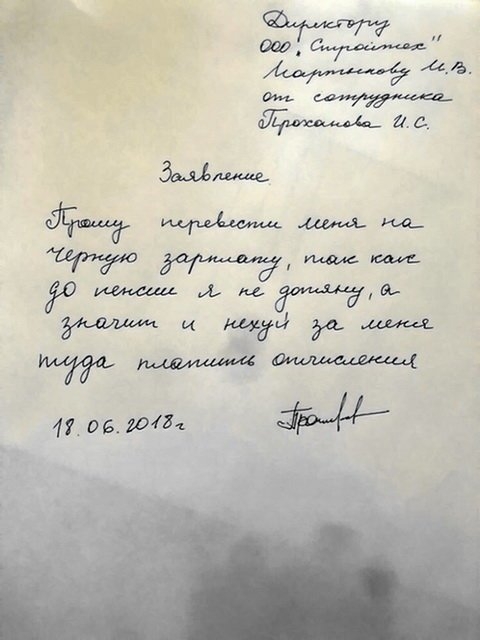 Директору
ООО „Стройтех"
Мартынову М.В.
от сотрудника
Проханова И.С.
Заявление
Прошу перевести меня на
черную зарплату, так как
до пенсии я не дотяну, а
значит и нехуй за меня
туда платить отчисления
18.06.2018г